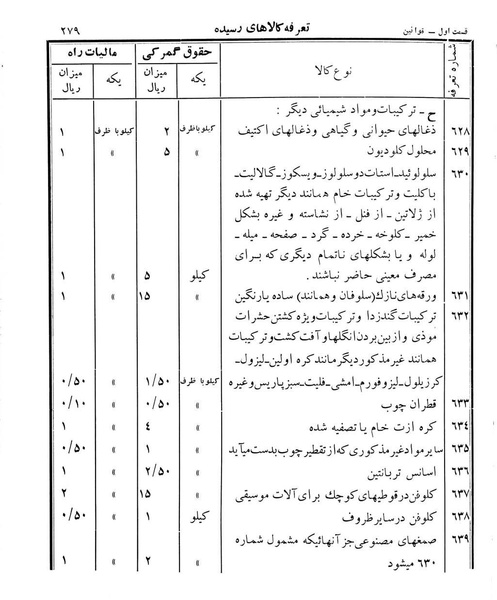 قسمت اول ــ قوانین تعرفه کالاهای رسیده ۲۷۹
شماره تعرفه نوع کالا حقوق گمرکی مالیات راه
یکه میزان ریال یکه میزان ریال
ح ــ ترکیبات و مواد شیمیائی دیگر :
۶۲۸ ذغالهای حیوانی و گیاهی و ذغالهای اکتیف کیلو با ظرف ۲ کیلو با ظرف ۱
۶۲۹ محلول کلودیون » ۵ » ۱
۶۳۰ سلولوئید ــ استات دو سلولوز ــ ویسکوز ــ گالالیت ــ
باکلیت و ترکیبات خام همانند دیگر تهیه شده
از ژلاتین ــ از فنل ــ از نشاسته و غیره بشکل
خمیر ــ کلوخه ــ خرده ــ گرد ــ صفحه ــ میله ــ
لوله و یا بشکلهای ناتمام دیگری که برای
مصرف معینی حاضر نباشند . کیلو ۵ » ۱
۶۳۱ ورقه‌های نازک (سلوفان و همانند) ساده یا رنگین » ۱۵ » ۱
۶۳۲ ترکیبات گندزدا و ترکیبات ویژه کشتن حشرات
موذی و از بین بردن انگلها و آفت کشت و ترکیبات
همانند غیر مذکور دیگر مانند کره اولین ــ لیزول ــ
کرزیلول ــ لیزوفورم ــ امشی ــ فلیت ــ سبز پاریس و غیره کیلو با ظرف ۱/۵۰ » ۰/۵۰
۶۳۳ قطران چوب » ۰/۵۰ » ۰/۱۰
۶۳۴ کره ازت خام یا تصفیه شده » ۴ » ۱
۶۳۵ سایر مواد غیر مذکوری که از تقطیر چوب بدست میآید » ۱ » ۰/۵۰
۶۳۶ اسانس تربانتین » ۲/۵۰ » ۱
۶۳۷ کلوفن در قوطیهای کوچک برای آلات موسیقی » ۱۵ » ۲
۶۳۸ کلوفن در سایر ظروف کیلو ۱ » ۰/۵۰
۶۳۹ صمغهای مصنوعی جز آنهائیکه مشمول شماره
۶۳۰ میشود » ۲ » ۱